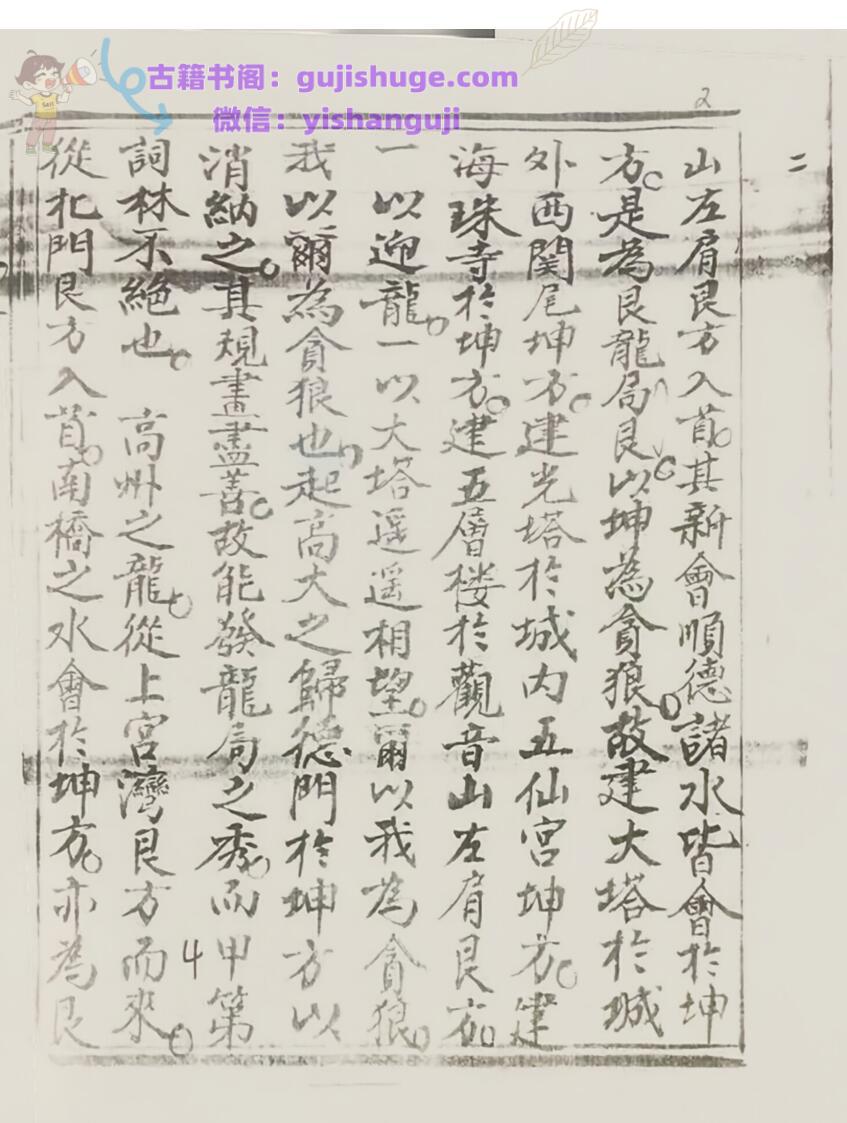 古籍书阁：gujishuge.com
微信：yishanguji
2
二
山左肩艮方入首。其新會順德諸水皆會於坤
方。是為艮龍局。艮以坤為貪狼。故建大塔於城
外西関尾坤方。建光塔於城内五仙宮坤方。建
海珠寺於坤方。建五層楼於觀音山左肩艮方。
一以迎龍。一以大塔遥遥相望。爾以我為貪狼。
我以爾為貪狼也。起高大之歸德門於坤方以
消納之。其規畫盡善。故能發龍局之秀。而甲第
詞林不絕也。　高州之龍。從上宮灣艮方而來。
4
從北門艮方入首。南橋之水會於坤方。亦為艮